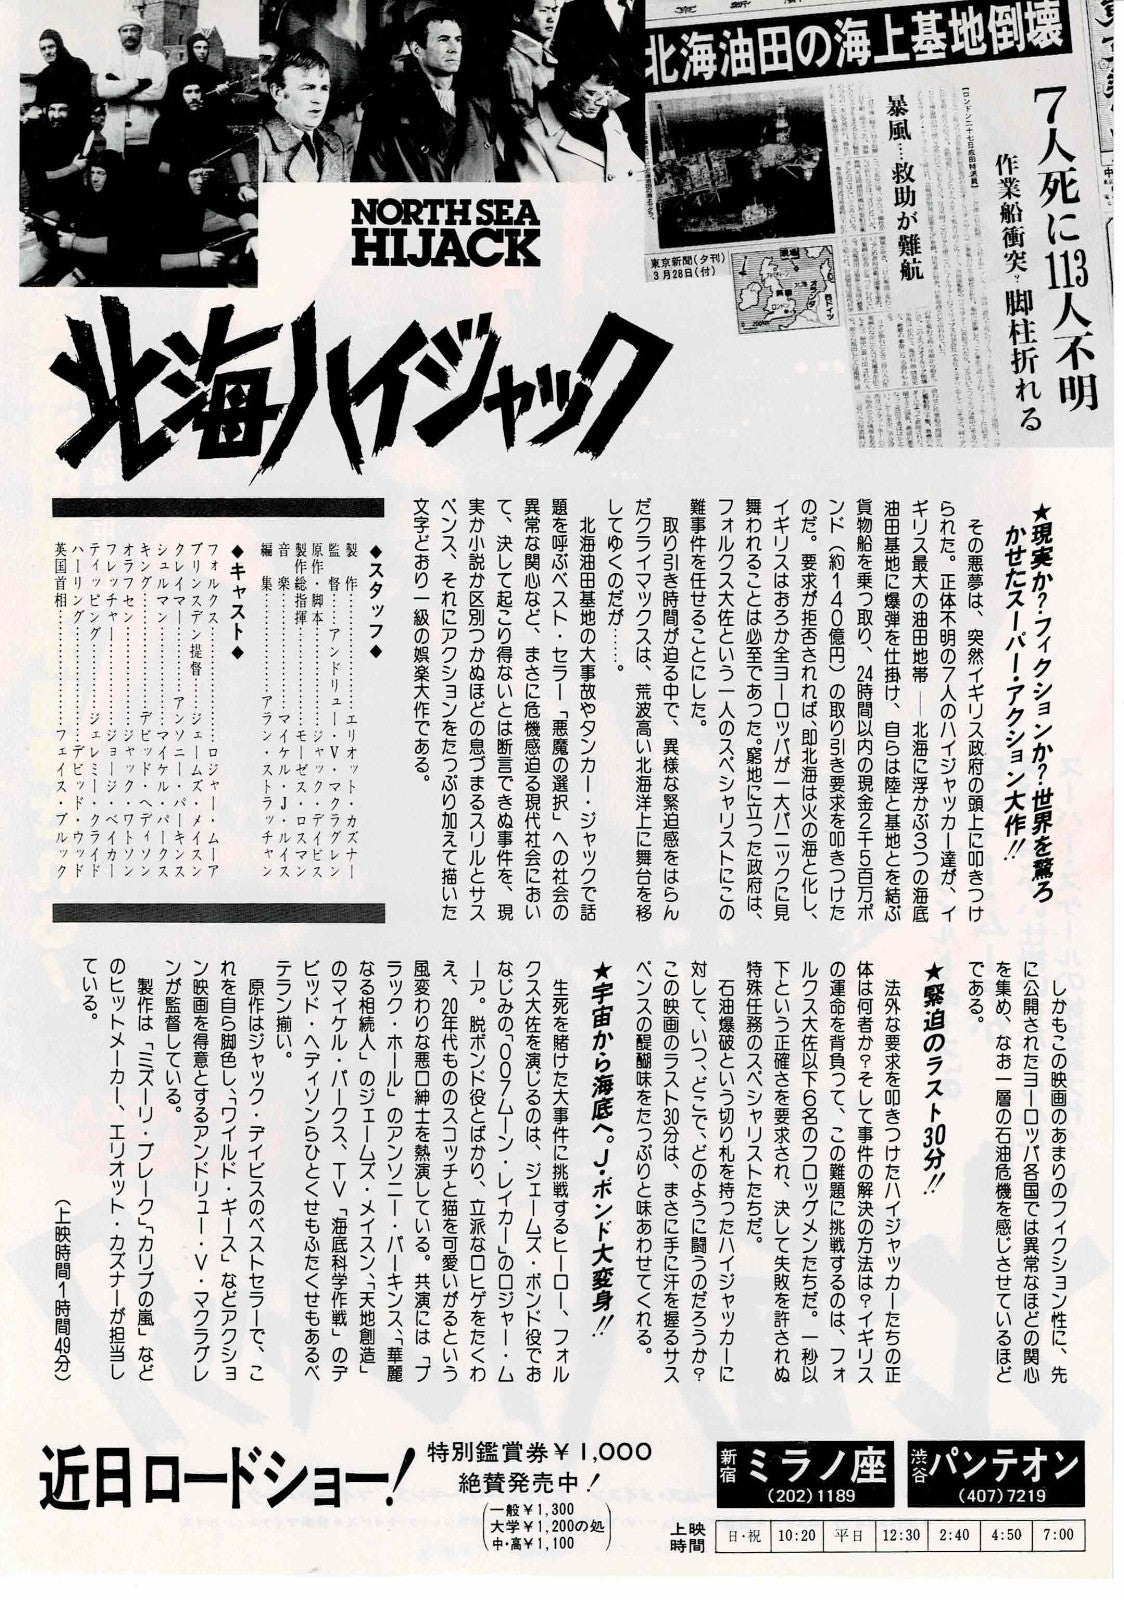 京 新 聞
北海油田の海上基地倒壊
7人死に113人不明
作業船衝突?脚柱折れる
暴風…救助が難航
東京新聞(夕刊)
3月28日(付)
NORTH SEA
HIJACK
北海ハイジャック
★現実か?フィクションか?世界を驚ろ
かせたスーパー・アクション大作!!
その悪夢は、突然イギリス政府の頭上に叩きつけ
られた。正体不明の7人のハイジャッカー達が、イ
ギリス最大の油田地帯 — 北海に浮かぶ3つの海底
油田基地に爆弾を仕掛け、自らは陸と基地とを結ぶ
貨物船を乗っ取り、24時間以内の現金2千5百万ポ
ンド(約140億円)の取り引き要求を叩きつけた
のだ。要求が拒否されれば、即北海は火の海と化し、
イギリスはおろか全ヨーロッパが一大パニックに見
舞われることは必至であった。窮地に立った政府は、
フォルクス大佐という一人のスペシャリストにこの
難事件を任せることにした。
取り引き時間が迫る中で、異様な緊迫感をはらん
だクライマックスは、荒波高い北海洋上に舞台を移
してゆくのだが……。
北海油田基地の大事故やタンカー・ジャックで話
題を呼ぶベスト・セラー「悪魔の選択」への社会の
異常な関心など、まさに危機感迫る現代社会におい
て、決して起こり得ないとは断言できぬ事件を、現
実か小説か区別つかぬほどの息づまるスリルとサス
ペンス、それにアクションをたっぷり加えて描いた
文字どおり一級の娯楽大作である。
◆スタッフ◆
製作……………エリオット・カズナー
監督……アンドリュー・V・マクラグレン
原作・脚本………ジャック・デイビス
製作総指揮………モーゼス・ロスマン
音楽……………マイケル・J・ルイス
編集……………アラン・ストラッチャン
◆キャスト◆
フォルクス……………ロジャー・ムーア
ブリンスデン提督……ジェームズ・メイスン
クレイマー………アンソニー・パーキンス
シュルマン……………マイケル・パークス
キング……………デビッド・ヘディソン
オラフセン……………ジャック・ワトソン
フレッチャー…………ジョージ・ベイカー
ティッピング………ジェレミー・クライド
ハーリング……………デビッド・ウッド
英国首相……………フェイス・ブルック
しかもこの映画のあまりのフィクション性に、先
に公開されたヨーロッパ各国では異常なほどの関心
を集め、なお一層の石油危機を感じさせているほど
である。
★緊迫のラスト30分!!
法外な要求を叩きつけたハイジャッカーたちの正
体は何者か?そして事件の解決の方法は?イギリス
の運命を背負って、この難題に挑戦するのは、フォ
ルクス大佐以下6名のフロッグメンたちだ。一秒以
下という正確さを要求され、決して失敗を許されぬ
特殊任務のスペシャリストたちだ。
石油爆破という切り札を持ったハイジャッカーに
対して、いつ、どこで、どのように闘うのだろうか?
この映画のラスト30分は、まさに手に汗を握るサス
ペンスの醍醐味をたっぷりと味あわせてくれる。
★宇宙から海底へ。J・ボンド大変身!!
生死を賭けた大事件に挑戦するヒーロー、フォル
クス大佐を演じるのは、ジェームズ・ボンド役でお
なじみの「007ムーン・レイカー」のロジャー・ム
ーア。脱ボンド役とばかり、立派な口ヒゲをたくわ
え、20年代もののスコッチと猫を可愛いがるという
風変わりな悪口紳士を熱演している。共演には「ブ
ラック・ホール」のアンソニー・パーキンス、「華麗
なる相続人」のジェームズ・メイスン、「天地創造」
のマイケル・パークス、TV「海底科学作戦」のデ
ビッド・ヘディソンらひとくせもふたくせもあるベ
テラン揃い。
原作はジャック・デイビスのベストセラーで、こ
れを自ら脚色し、「ワイルド・ギース」などアクショ
ン映画を得意とするアンドリュー・V・マクラグレ
ンが監督している。
製作は「ミズーリ・ブレーク」「カリブの嵐」など
のヒットメーカー、エリオット・カズナーが担当し
ている。
(上映時間1時間49分)
近日ロードショー!
特別鑑賞券¥1,000
絶賛発売中!
(一般¥1,300
大学¥1,200の処
中・高¥1,100)
新宿 ミラノ座
(202)1189
渋谷 パンテオン
(407)7219
上映時間 日・祝 10:20 平日 12:30 2:40 4:50 7:00